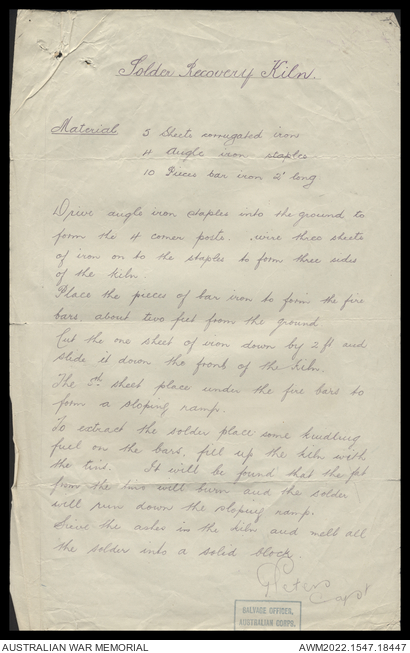 Solder Recovery Kiln.
Material 5 Sheets corrugated iron
4 Angle iron staples
10 Pieces bar iron 2' long
Drive angle iron staples into the ground to
form the 4 corner posts. wire three sheets
of iron on to the staples to form three sides
of the kiln.
Place the pieces of bar iron to form the fire
bars about two feet from the ground
Cut the one sheet of iron down by 2 ft and
slide it down the front of the kiln.
The sheet place under the fire bars to
form a sloping ramp.
To extract the solder place some kindling
fuel on the bars, fill up the kiln with
the tins. It will be found that the fat
from the tins will burn and the solder
will run down the sloping ramp.
Sieve the ashes in the kiln and melt all
the solder into a solid block.
Peters
Capt
SALVAGE OFFICER,
AUSTRALIAN CORPS.
AUSTRALIAN WAR MEMORIAL
AWM2022.1547.18447